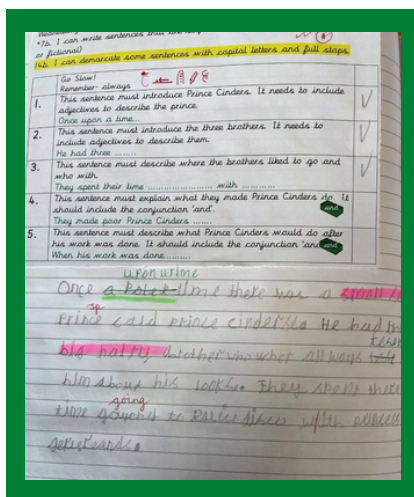 *7b. I can write sentences that
or fictional)
14b. I can demarcate some sentences with capital letters and full stops.
Go Slow!
Remember- always
1. This sentence must introduce Prince Cinders. It needs to include
adjectives to describe the prince.
Once upon a time...
2. This sentence must introduce the three brothers. It needs to
include adjectives to describe them.
He had three ........
3. This sentence must describe where the brothers liked to go and
who with.
They spent their time .................... with ............
4. This sentence must explain what they made Prince Cinders do. It
should include the conjunction 'and'.
and
They made poor Prince Cinders ........
5. This sentence must describe what Prince Cinders would do after
his work was done. It should include the conjunction 'and
and
When his work was done.........
upon
Once a time there was a small
sp
Prince cald prince cinders He had
big hairy brother who all ways
him about his looks. They spent
going
time to disco with